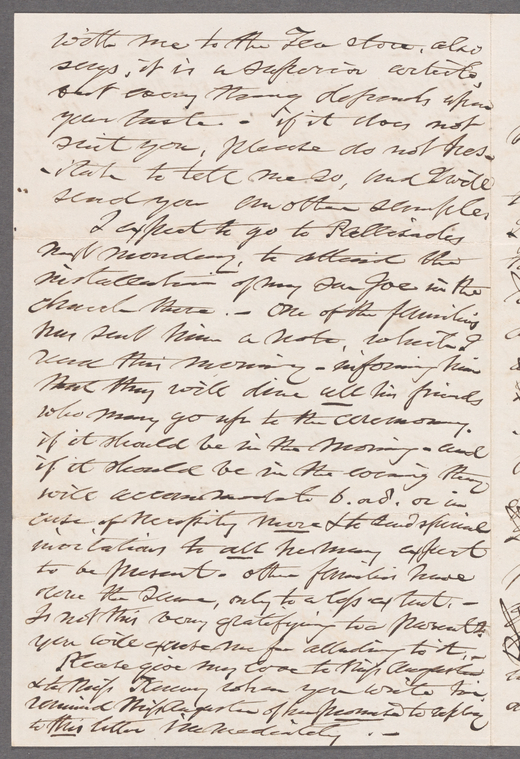 with me to the Tea store, also
says, it is a superior article,
but every thing depends upon
your taste. - if it does not
suit you, please do not hes-
-itate to tell me so, and I will
send you another sample.
I expect to go to Pallisades
next monday, to attend the
installation of my son Joe in the
church there. - One of the families
has sent him a note, which I
read this morning - informing him
that they will dine all his friends
who may go up to the ceremony.
if it should be in the morning - and
if it should be in the evening they
will accommodate 6. or 8. or in
case of necessity more & to send special
invitations to all he may expect
to be present. other families have
done the same, only to a less extent. -
Is not this very gratifying to a parent &
you will excuse me for alluding to it. -
Please give my love to Miss Augusta
& to Miss when you write
remind Miss Augusta of her promise to reply
to this letter immediately. -